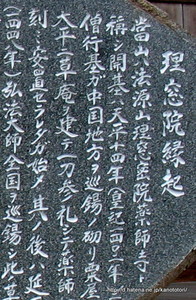 理窓院縁起
當山ハ法源山理窓医院薬師ト
稱シ開基ハ天平十四年(皇記一四〇二年)
僧行基が中国地方ヲ巡錫ノ砌リ栗尾
大平ニ草庵ヲ建テ一刀参礼シテ薬師
刻ミ安置セラタガ始メ其ノ後ノ延
(一四四八年)弘法大師全国ヲ巡錫シ此
http://d.hatena.ne.jp/kanototori/